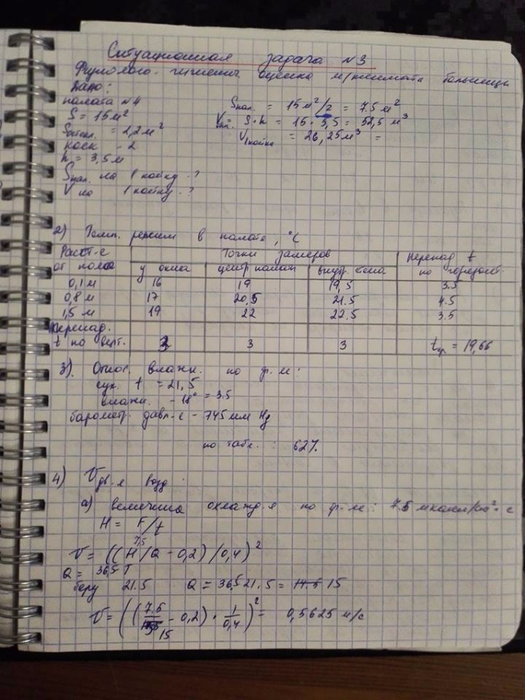 Ситуационная задача №3
Физиолого-гигиенич оценка м/климата больницы
Дано:
палата №4
S = 15 м²
Sостекл. = 2,2 м²
коек - 2
h = 3,5 м
Sпал. на 1 койку ?
V на 1 койку ?
Sпал. = 15 м²/2 = 7.5 м²
V = S·h = 15 · 3,5 = 52,5 м³
V1койк = 26,25 м³ =
2) Темп. режим в палате, °C
Расст-е от пола | Точки замеров | перепад t по горизонт.
у окна | центр палат | внутр. стена
0,1 м | 16 | 19 | 19,5 | 3.5
0,8 м | 17 | 20.5 | 21.5 | 4.5
1,5 м | 19 | 22 | 22.5 | 3.5
Перепад.
t по верт. | 3 | 3 | 3 | tср = 19,66
3) Относ. влажн. по ф.м:
сух. t = 21,5
влажн. - 18° = 3.5
баромет давл-е - 745 мм Hg
по табл. : 62%
4) Vдв-я возд:
а) величина охлажд-я по ф-ле: 7.5 мкалл/см²·с
H = F/t
7,5
V = ((H/Q - 0,2)/0,4)²
Q = 36,5 T
беру 21.5 Q = 36,5 21.5 = 15
V = ((7.5/15 - 0,2) · 1/0,4)² = 0,5625 м/с